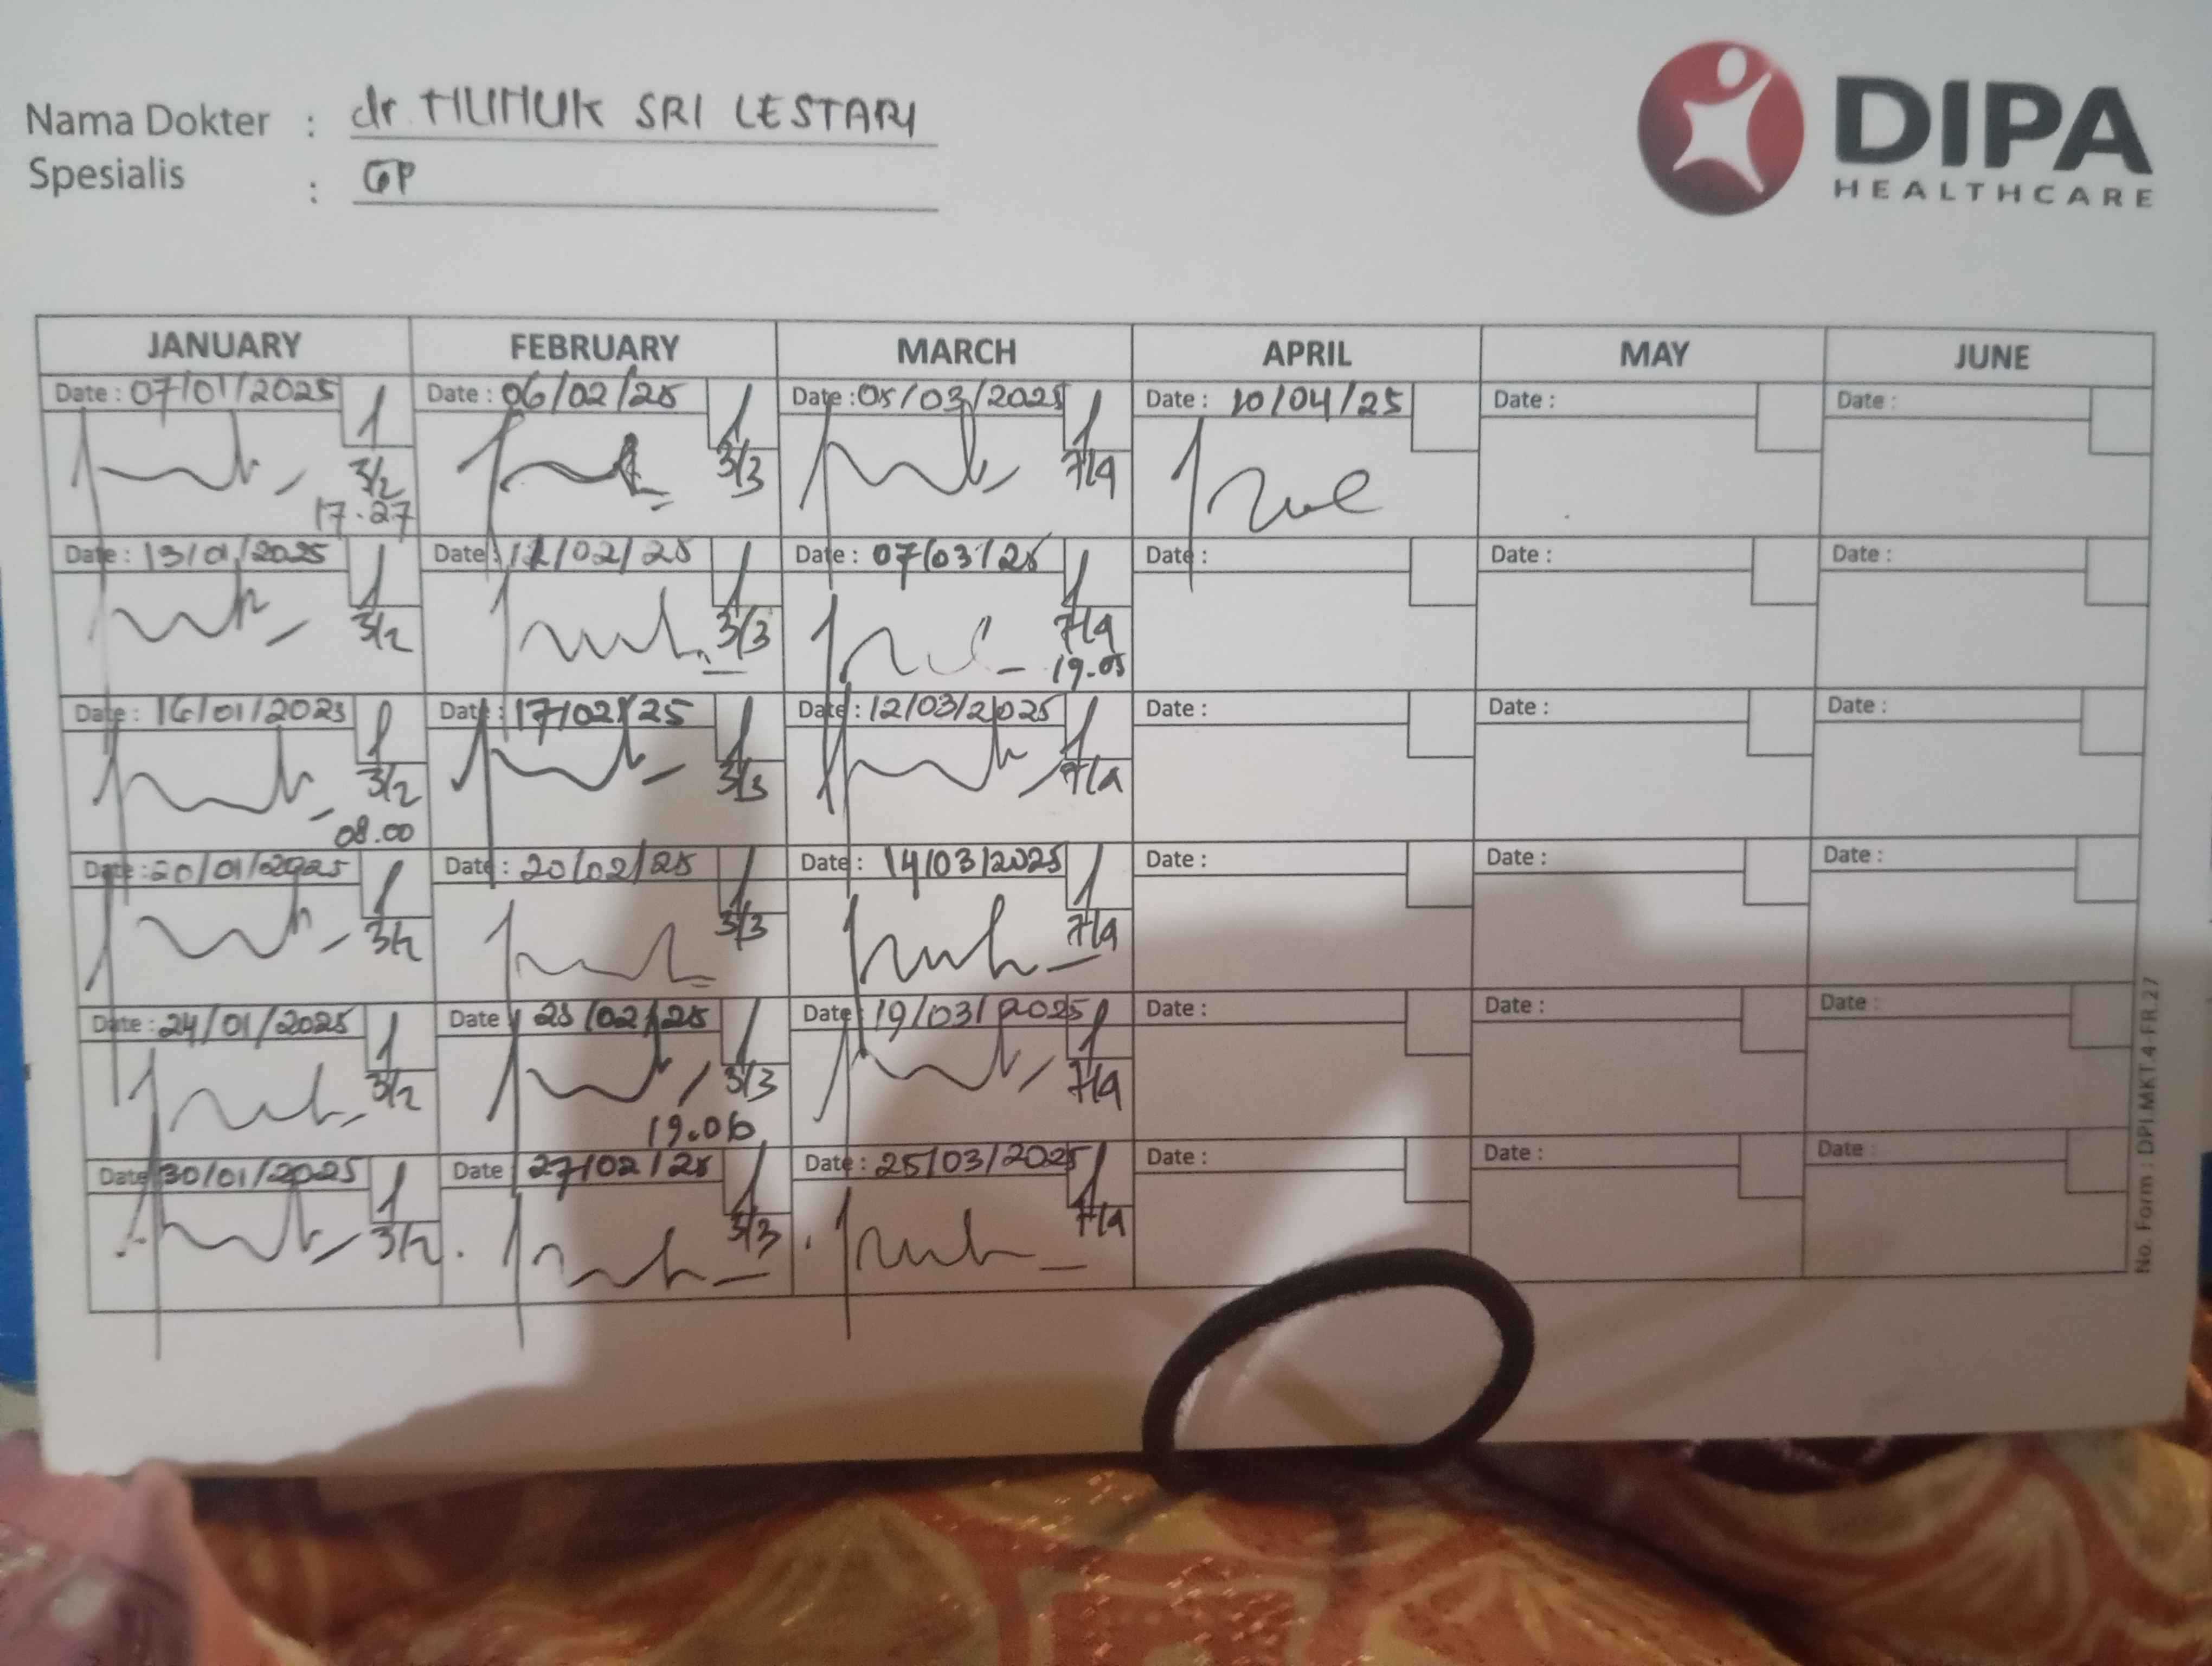 Nama Dokter : dr. SRI LESTARI
Spesialis : GP
DIPA
HEALTHCARE
JANUARY FEBRUARY MARCH APRIL MAY JUNE
Date : 07/01/2025 Date : 06/02/25 Date : 05/03/2025 Date : 10/04/25 Date : Date :
3/2 3/3 7/4
17.27
Date : 13/01/2025 Date : /02/25 Date : 07/03/25 Date : Date : Date :
3/2 3/3 7/4
19.05
Date : 16/01/2025 Date : 17/02/25 Date : 12/03/2025 Date : Date : Date :
3/2 3/3 7/4
08.00
Date : 20/01/2025 Date : 20/02/25 Date : 14/03/2025 Date : Date : Date :
3/2 3/3 7/4
Date : 24/01/2025 Date : 25/02/25 Date : 19/03/2025 Date : Date : Date :
3/2 3/3 7/4
19.06
Date : 30/01/2025 Date : 27/02/25 Date : 25/03/2025 Date : Date : Date :
3/2 3/3 7/4
No. Form : DPI.MKT.4-FR.27